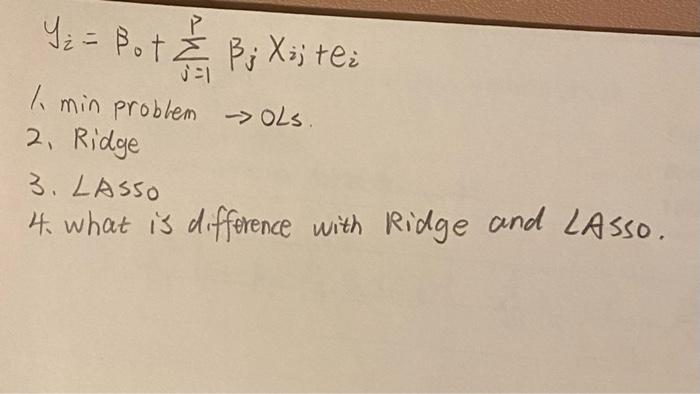 yᵢ = β₀ + Σⱼ₌₁ᵖ βⱼ Xᵢⱼ + eᵢ
1. min problem → OLS.
2. Ridge
3. LASSO
4. what is difference with Ridge and LASSO.